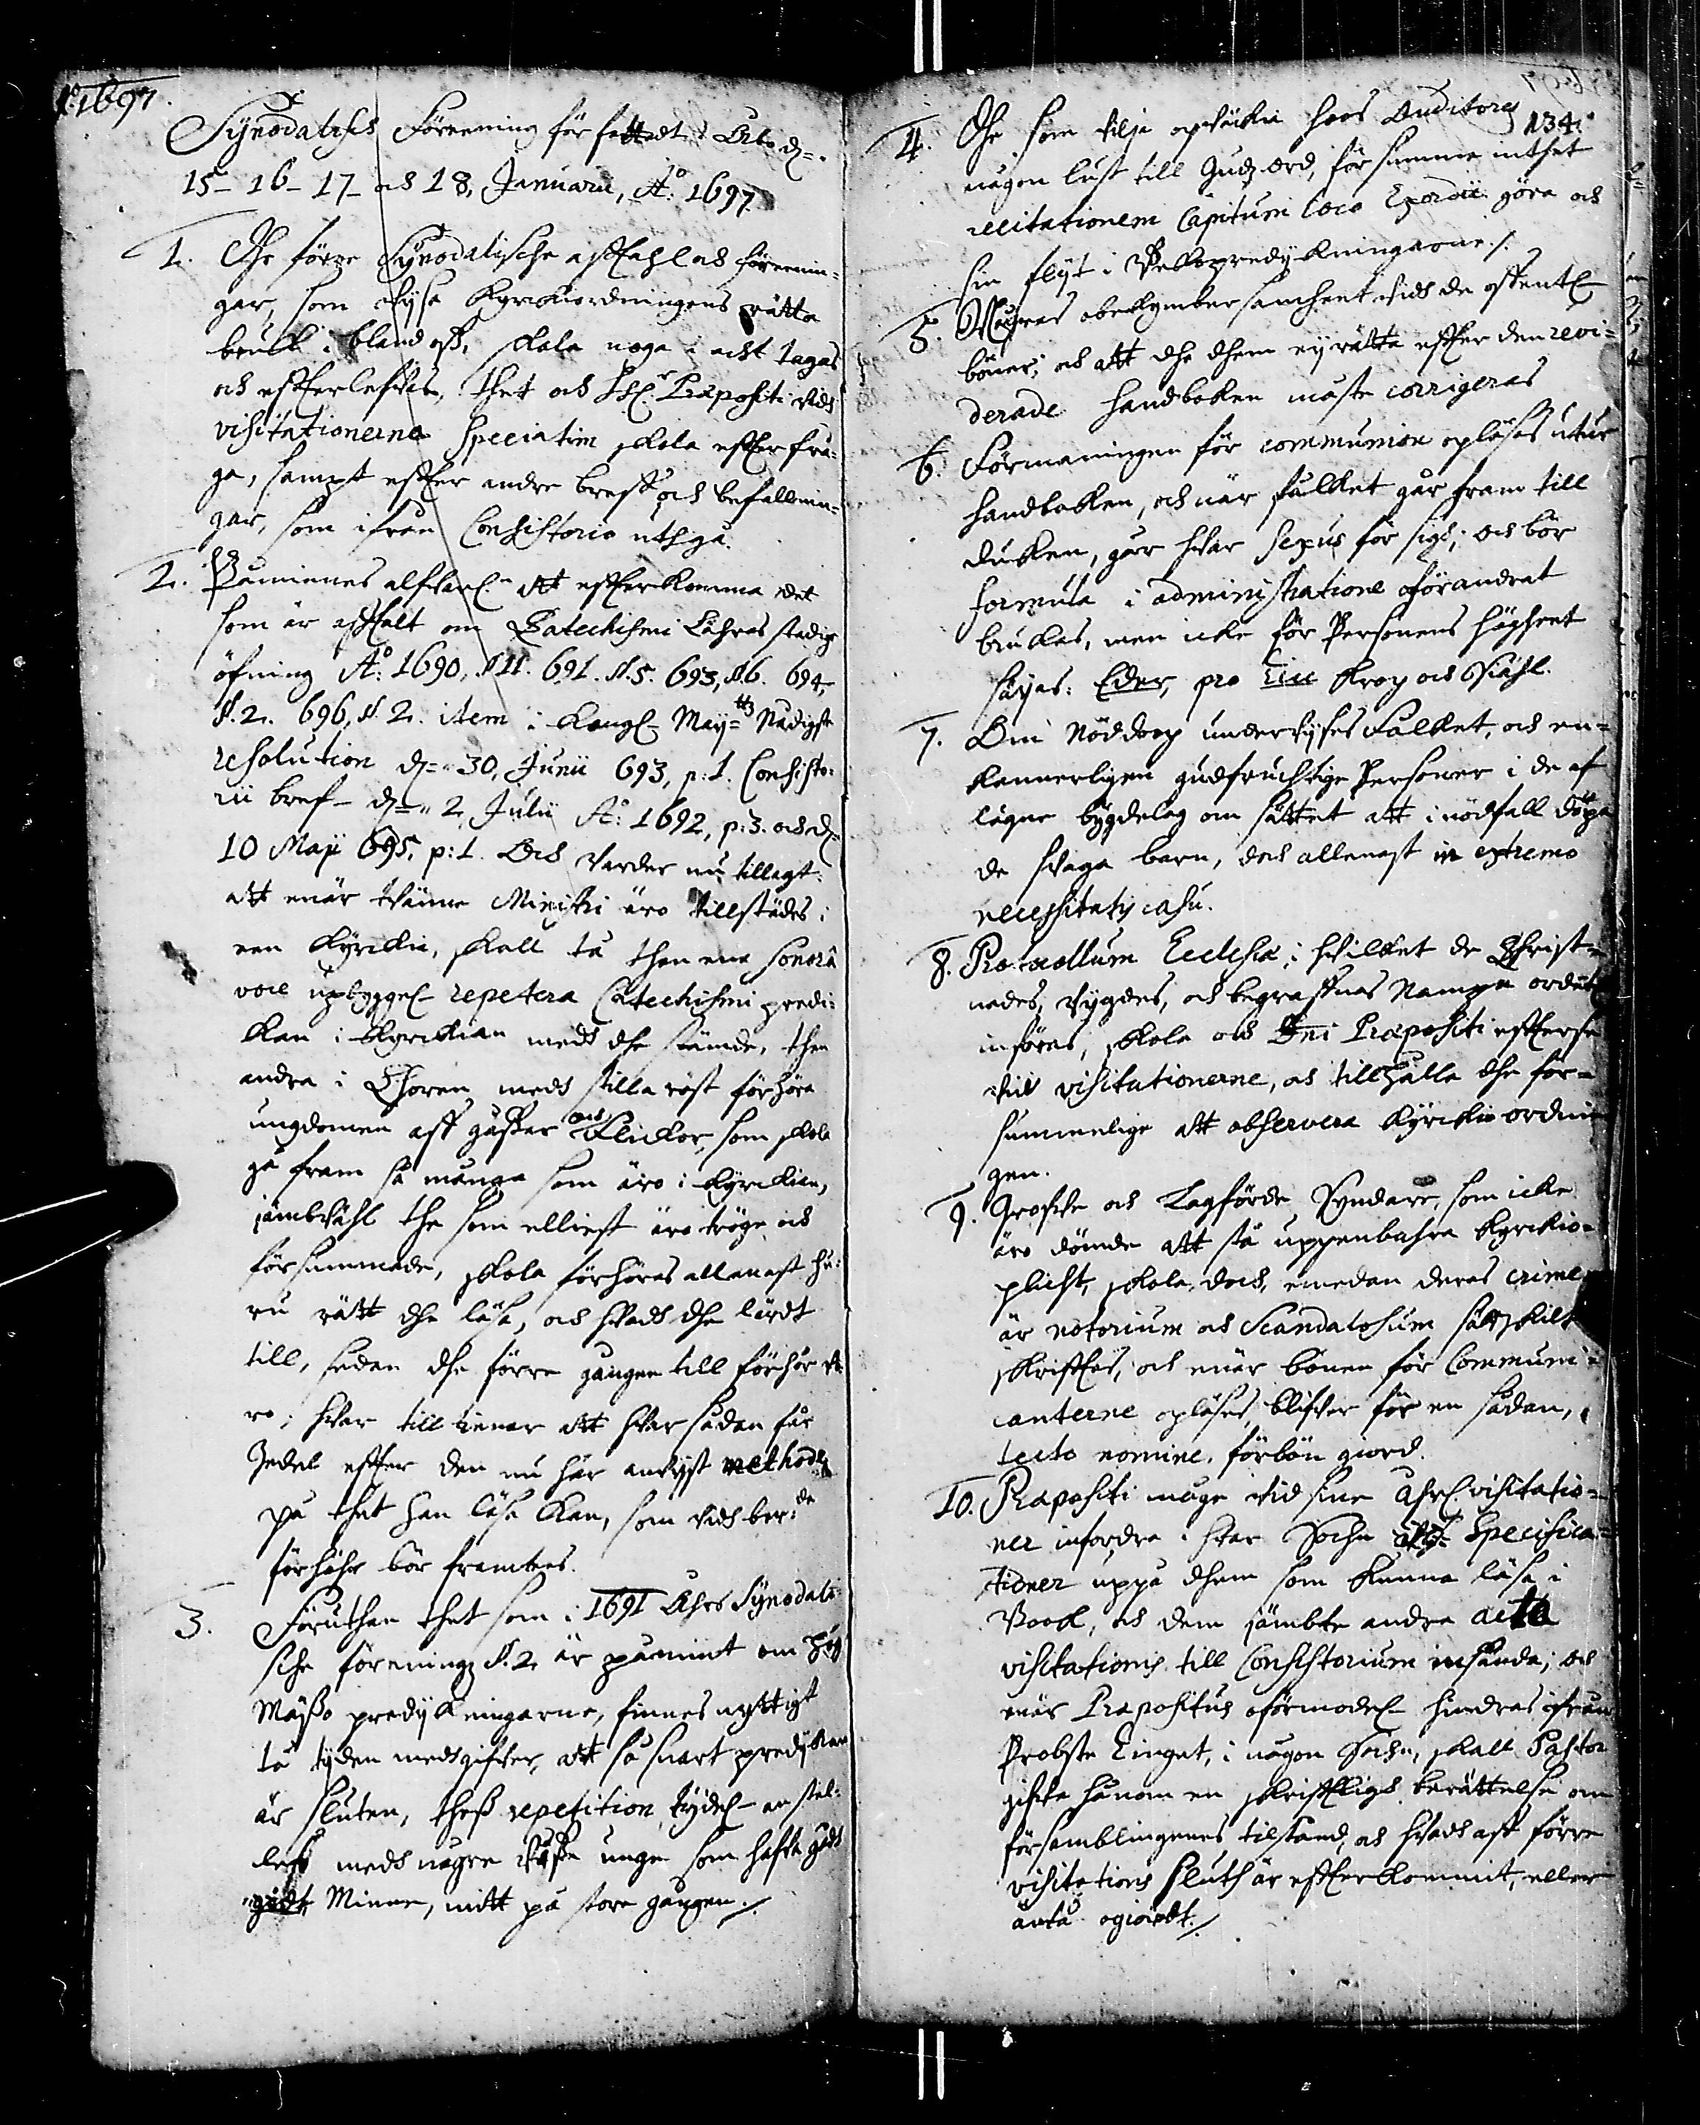 A:o 1697.
Synodalisch Föreening för fattadt i Åbo d:
15_ 16_ 17_ och 18, Januarii, A:o 1697
1. The förre Synodalische affhandl och föreenin-
gar, som wysa Kyrckiordningens rätta
bruk i bland oss, skola noga i acht tagas
och effterlefwas, thet och HH:r Præpositi widh
visitationerne speciatim skola effterfrå-
ga, sampt effter andre breff och befallnin-
gar, som ifrån Consistorio uthgå.
2. Påminnes alfwarl: att effterkomma det
som är affhalt om Catechismi Lähras stadige
öfning A:o 1690, §11. 691. §.5. 693, §6. 694,
§.2. 696, §.2. item i Kongl. May:ttz Nådigste
resolution d: 30, Junii 693, p:1. Consisto-
rii bref d: 2, Julii A:o 1692, p:3. och d:
10 Maji 695, p:1. Och warder nu tillagt:
att enär twänne Ministri äro tillstädes i
een kyrckia, skall tå then ena sonorâ
voce upbyggel. repetera Catechismi predi-
kan i Kyrckian medh dhe främde, then
andra i Choren medh stilla röst förhöra
ungdomen aff gåssar och Flickor, som skola
gå fram så många som äro i kyrckian,
jämbwähl the som elliest äro tröge och
försummade, skola förhöras allenast hu-
ru rätt dhe läsa, och hwadh dhe lärdt
till, sedan dhe förre gången till förhör wo-
ro; hwar till tienar att hwar sådan får
Zedel effter den nu här anwyst methode
på thet han läsa kan, som widh ber:de
förhöhr bör framtees.
3. Föruthan thet som i 1691 Åhrs Synodali-
sche förening §.2. är påmint om Hög
Mässo predykningarne, finnes nyttigt
tå tyden medhgifwer, att så snart predykan
är sluten, thess repetition tydel. anstel-
les medh någre wisse unge som hafwa godt
godt Minne, mitt på store gången./.
134.
4. The som wilja opwäckia hoos Auditores
någon lust till Gudz ord, försumme inthet
recitationem Capitum loco Exordii göra och
sin flyt i Wekopredykningarne./.
5. obekymbersamheet widh de offentl.
böner; och att dhe dhem ey rätta effter den revi-
derade handboken måste corrigeras
6. Förmaningen för communion opläses utur
handboken, och när folket går fram till
duken, går hwar sexus för sigh; och bör
formula i administratione oförandrat
brukas, men icke för Personens högheet
säyas: Eder, pro Tin kropp och Siähl.
7. Om Nöddop underwyses Folket, och en-
kannerligen gudfruchtige Personer i de af
lägne bygdelag om sättet att i nödfall döpa
de swaga barn, doch allenast in extremo
necessitatis casu.
8. Protocollum Ecclesiæ, i hwilket de Christ-
nades, wygdes, och begrafnes Nampn ordentl.
införes, skola och Dni Præpositi effterse
wid visitationerne, och tillhålla dhe för-
summelige att observera kyrckio ordnin-
gen.
9. Groffwe och Lagförde Syndare, som icke
äro dömde att stå uppenbahra kyrckio-
plicht, skola doch, emedan deras crimen
är notorium och Scandalosum särskilt
skrifftes, och enär bönen för Communi-
canterne opläses, blifwer för en sådan,
tecto nomine, förbön giord.
10. Præpositi måge wid sine Åhrl. visitatio-
ner infordra i hwar Sochn Specifica-
tioner uppå dhem som kunna läsa i
Book, och dem jämbte andre acta
visitationis till Consistorium insända; och
enär Præpositus oförmodel. hindras ifrån
Probste Tinget, i någon Sochn, skall Pastor
gifwa hånom en skrifftligh berättelse om
församblingenes tilstånd, och hwadh aff förre
visitations sluth är effterkommit, eller
äntå ogiordt./.